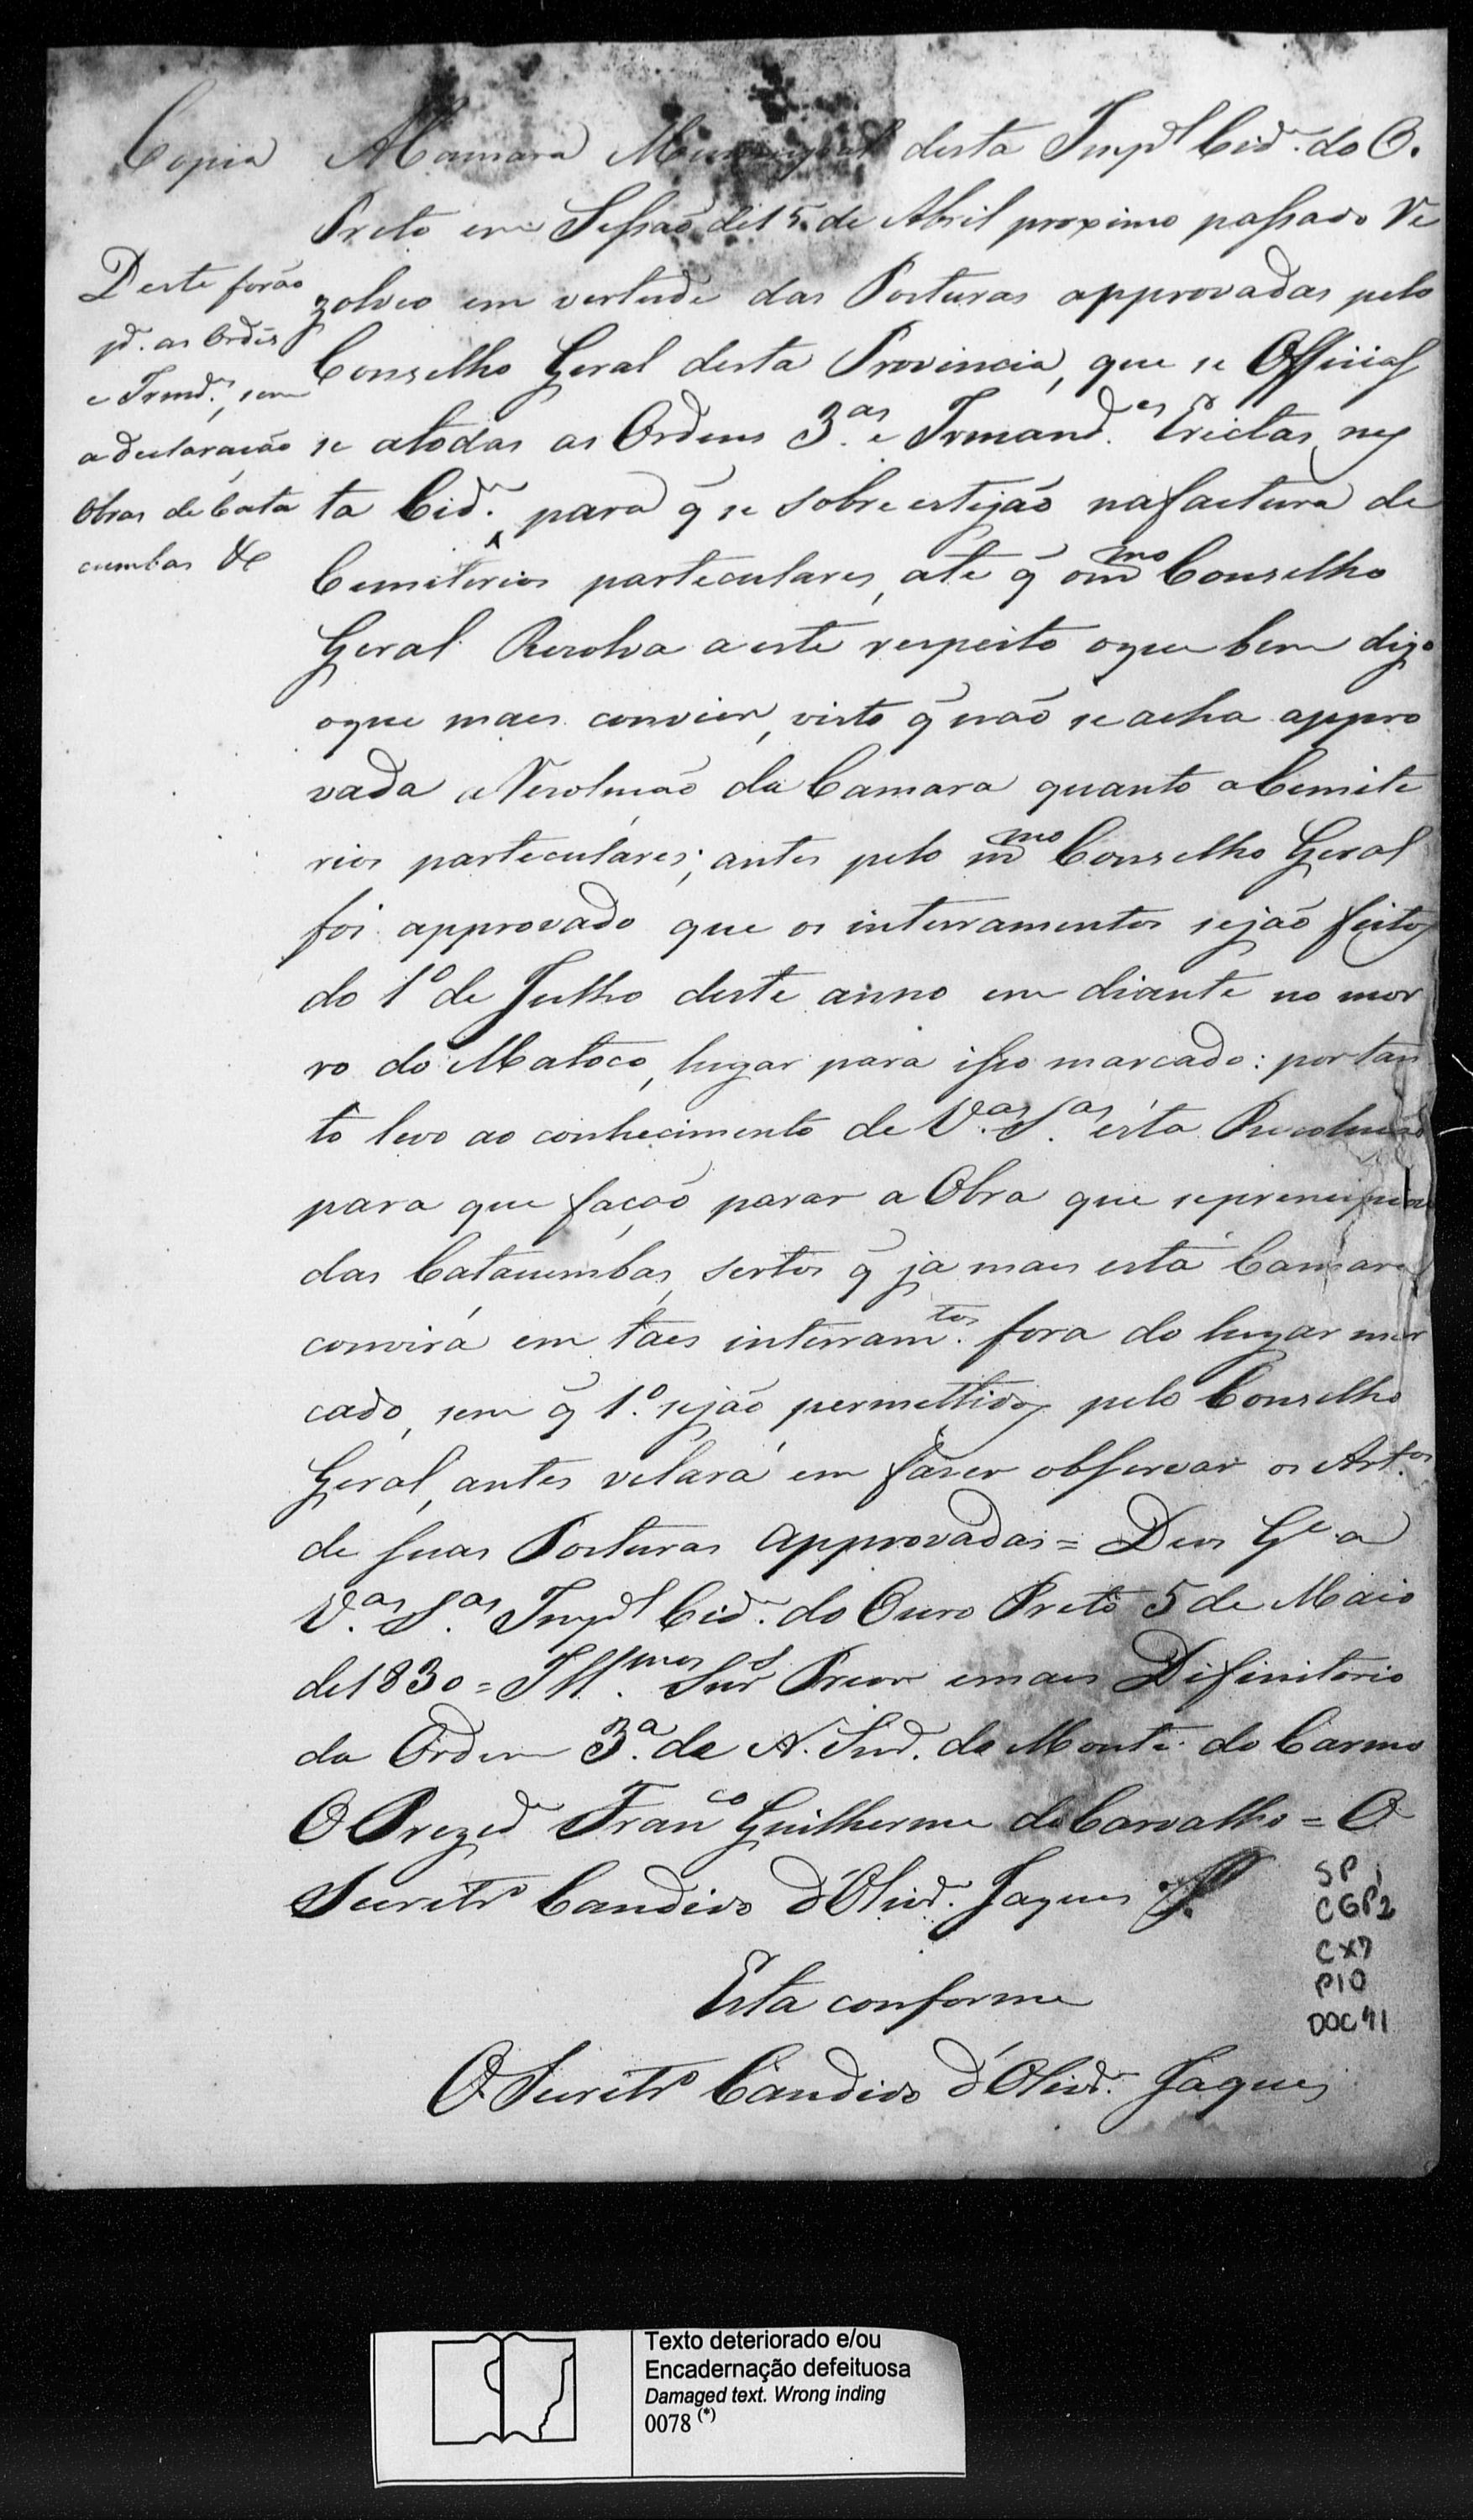 Copia
A Camara Municipal desta Imp.l Cid.e do O.
Preto em Sessaõ de 15 de Abril proximo passado Re
zolveo em vertude das Posturas approvadas pelo
Conselho Geral desta Provincia, que se Officias
se atodas as Ordens 3.as e Irmand.es Erectas nes
ta Cid.e para q̃ se sobre estejaõ nafactura de
Cemiterios particulares, ate q̃ o m.mo Conselho
Geral Resolva a este respeito oque bem digo
oque mais convier, visto q̃ naõ se acha appro
vada a Resoluçaõ da Camara quanto a Cemite
rios particulares; antes pelo m.mo Conselho Geral
foi approvado que os interramentos sejaõ feitos
do 1º de Julho deste anno em diante no mor
ro do Matoco, lugar para isso marcado: portan
to levo ao conhecimento de V.as S.as ésta Resoluçaõ
para que façaõ parar a Obra que se principiou
das Catacumbas, sertos q̃ ja mais esta Camara
convirá em taes interram.tos fora do lugar mar
cado, sem q̃ 1.º sejaõ permettidos pelo Conselho
Geral, antes velará em fazer observar os Art.os
de suas Posturas approvadas = Deos G.e a
V.as S.as Imp.l Cid.e do Ouro Preto 5 de Maio
de 1830 = Ill.mos Snr.s Prior emais Difinitorio
da Ordem 3.ª de N. Snr.ª do Monte do Carmo
O Prezid.e Fran.co Guilherme de Carvalho = O
Secretr.º Candido d'Olivr.ª Jaques
Esta conforme
O Secretr.º Candido d'Olivr.ª Jaques
Deste foraõ
p.ª as Ordẽs
e Irmd.es, sem
adeclaraçaõ
Obras de Cata
cumbas &c
SP
CGP2
CX7
P10
DOC 41
Texto deteriorado e/ou
Encadernação defeituosa
Damaged text. Wrong inding
0078 (*)